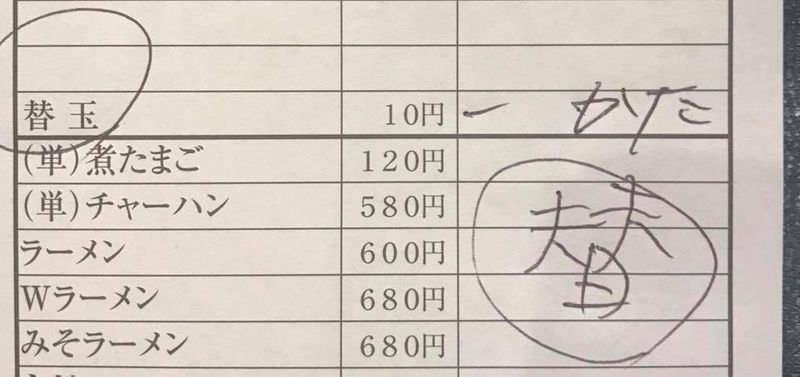 替玉 10円 一 かたこ
(単)煮たまご 120円
(単)チャーハン 580円
替
ラーメン 600円
Wラーメン 680円
みそラーメン 680円